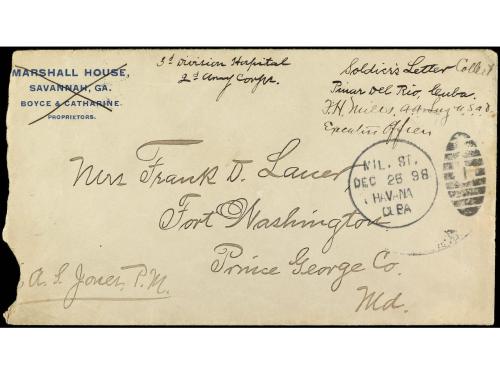 MARSHALL HOUSE,
SAVANNAH, GA.
BOYCE & CATHARINE.
PROPRIETORS.
3d Division Hospital
2d Army Corps.
Soldier's Letter Collect
Pinar del Rio, Cuba.
F.H. Mills,
Executive Officer
MIL. ST.
DEC 26 98
HAVANA
CUBA
1
Mrs Frank D. Lauer
Fort Washington
Prince George Co.
Md.
A. S. Jones, P.M.